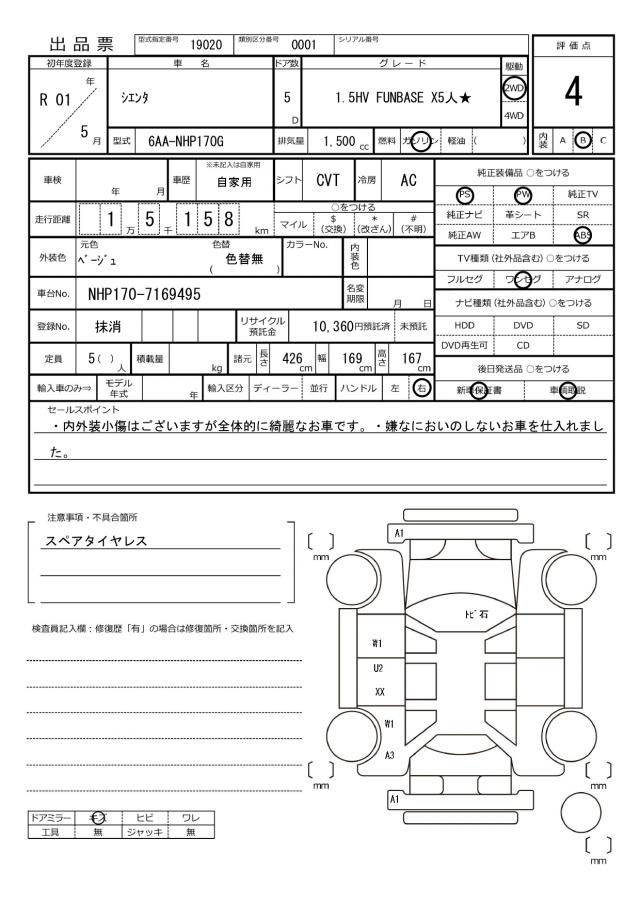 出品票 型式指定番号 19020 類別区分番号 0001 シリアル番号
評価点
初年度登録 車名 ドア数 グレード 駆動
R 01 年 5 月 シエンタ 5 D 1.5HV FUNBASE X5人★ 2WD 4WD
4
型式 6AA-NHP170G 排気量 1,500 cc 燃料 ガソリン 軽油 ( ) 内装 A B C
車検 年 月 車歴 ※未記入は自家用 自家用 シフト CVT 冷房 AC
走行距離 1 5 万 千 1 5 8 km ○をつける
マイル $ (交換) * (改ざん) # (不明)
外装色 元色 ベージュ 色替 ( 色替無 ) カラーNo. 内装色
車台No. NHP170-7169495 名変期限 月 日
登録No. 抹消 リサイクル預託金 10,360円預託済 未預託
定員 5( ) 人 積載量 kg 諸元 長さ 426 cm 幅 169 cm 高さ 167 cm
輸入車のみ⇒ モデル年式 年 輸入区分 ディーラー 並行 ハンドル 左 右
純正装備品 ○をつける
PS PW 純正TV
純正ナビ 革シート SR
純正AW エアB ABS
TV種類(社外品含む)○をつける
フルセグ ワンセグ アナログ
ナビ種類(社外品含む)○をつける
HDD DVD SD
DVD再生可 CD
後日発送品 ○をつける
新車保証書 車輌取説
セールスポイント
・内外装小傷はございますが全体的に綺麗なお車です。・嫌なにおいのしないお車を仕入れまし
た。
注意事項・不具合箇所
スペアタイヤレス
検査員記入欄:修復歴「有」の場合は修復箇所・交換箇所を記入
A1
mm
mm
トビ石
W1
U2
XX
W1
A3
mm
mm
A1
mm
ドアミラー キズ ヒビ ワレ
工具 無 ジャッキ 無